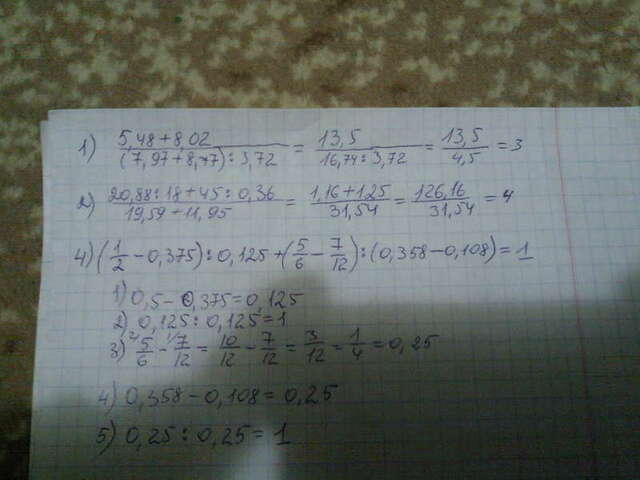 1) (5,48+8,02)/((7,97+8,77):3,72) = 13,5/(16,74:3,72) = 13,5/4,5 = 3
2) (20,88:18+45:0,36)/(19,59+11,95) = (1,16+125)/31,54 = 126,16/31,54 = 4
4) (1/2 - 0,375):0,125+(5/6 - 7/12):(0,358-0,108) = 1
1) 0,5-0,375=0,125
2) 0,125:0,125=1
3) 5/6 - 7/12 = 10/12 - 7/12 = 3/12 = 1/4 = 0,25
4) 0,358-0,108=0,25
5) 0,25:0,25=1